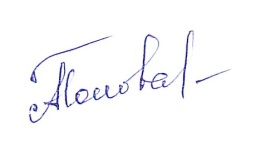 АПопова